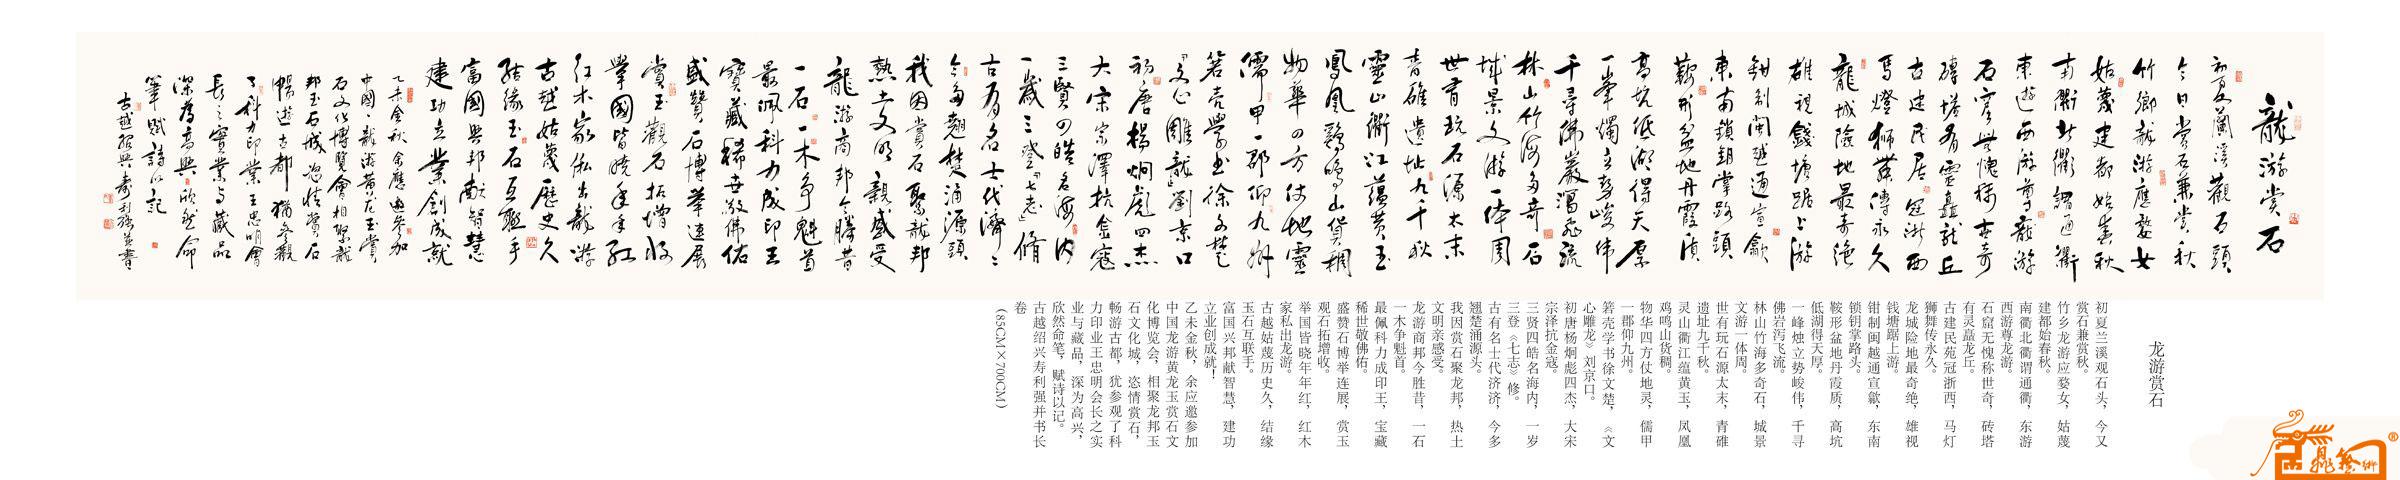 龍游赏石
初夏蘭溪觀石頭
今日赏石兼赏秋
竹鄉龍游應婺女
姑蔑建都始春秋
南衢北衢謂通衢
東遊西游尊龍游
石窟無愧称世奇
磚塔有靈嘉龍丘
古建民居冠浙西
馬燈狮舞傳永久
龍城險地最奇绝
雄視錢塘踞上游
鉗制閩越通宣歙
東南鎖鑰掌路頭
鞍形盆地丹霞质
高坑低湖得天厚
一峯燭立势峻伟
千尋佛巖瀉飛流
林山竹海多奇石
城景文游一体周
世有玩石源太末
青碓遺址九千秋
靈山衢江蕴黄玉
鳳凰鷄鳴山貨稠
物華四方仗地靈
儒甲一郡仰九州
箬壳學书徐文楚
《文心雕龍》劉京口
初唐楊炯彪四杰
大宋宗澤抗金寇
三賢四皓名海内
一歲三登「七志」脩
古有名士代濟々
今多翹楚涌源頭
我因赏石聚龍邦
熱土文明親感受
龍游商邦今勝昔
一石一木争魁首
最佩科力成印王
寶藏稀世敬佛佑
盛贊石博举連展
赏玉觀石拓增收
舉國皆曉年年红
红木家私出龍游
古越姑蔑歷史久
结缘玉石互聯手
富國興邦献智慧
建功立業創成就
乙未金秋余應邀参加
中國·龍游黄龙玉赏
石文化博覽會相聚龍
邦玉石城恣情赏石
暢遊古都猶参觀
了科力印業王忠明會
長之實業与藏品
深為高興欣然命
筆賦詩以記
古越绍興壽利强并書
龙游赏石
初夏兰溪观石头，今又
赏石兼赏秋。
竹乡龙游应婺女，姑蔑
建都始春秋。
南衢北衢谓通衢，东游
西游尊龙游。
石窟无愧称世奇，砖塔
有灵嘉龙丘。
古建民苑冠浙西，马灯
狮舞传永久。
龙城险地最奇绝，雄视
钱塘踞上游。
钳制闽越通宣歙，东南
锁钥掌路头。
鞍形盆地丹霞质，高坑
低湖得天厚。
一峰烛立势峻伟，千寻
佛岩泻飞流。
林山竹海多奇石，城景
文游一体周。
世有玩石源太末，青碓
遗址九千秋。
灵山衢江蕴黄玉，凤凰
鸡鸣山货稠。
物华四方仗地灵，儒甲
一郡仰九州。
箬壳学书徐文楚，《文
心雕龙》刘京口。
初唐杨炯彪四杰，大宋
宗泽抗金寇。
三贤四皓名海内，一岁
三登《七志》修。
古有名士代济济，今多
翘楚涌源头。
我因赏石聚龙邦，热土
文明亲感受。
龙游商邦今胜昔，一石
一木争魁首。
最佩科力成印王，宝藏
稀世敬佛佑。
盛赞石博举连展，赏玉
观石拓增收。
举国皆晓年年红，红木
家私出龙游。
古越姑蔑历史久，结缘
玉石互联手。
富国兴邦献智慧，建功
立业创成就！
乙未金秋，余应邀参加
中国龙游黄龙玉赏石文
化博览会，相聚龙邦玉
石文化城，恣情赏石，
畅游古都，犹参观了科
力印业王忠明会长之实
业与藏品，深为高兴，
欣然命笔，赋诗以记。
古越绍兴寿利强并书长
卷
（85CM×700CM）